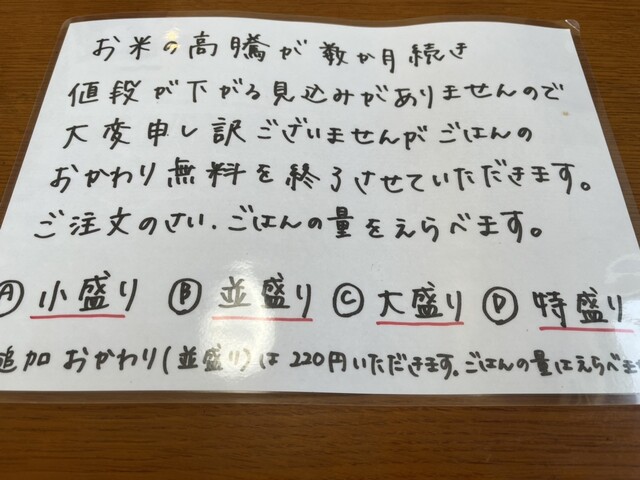 お米の高騰が数か月続き
値段が下がる見込みがありませんので
大変申し訳ございませんがごはんの
おかわり無料を終了させていただきます。
ご注文のさい、ごはんの量をえらべます。
Ⓐ 小盛り Ⓑ 並盛り Ⓒ 大盛り Ⓓ 特盛り
追加 おかわり(並盛り)は 220円いただきます。ごはんの量はえらべませ